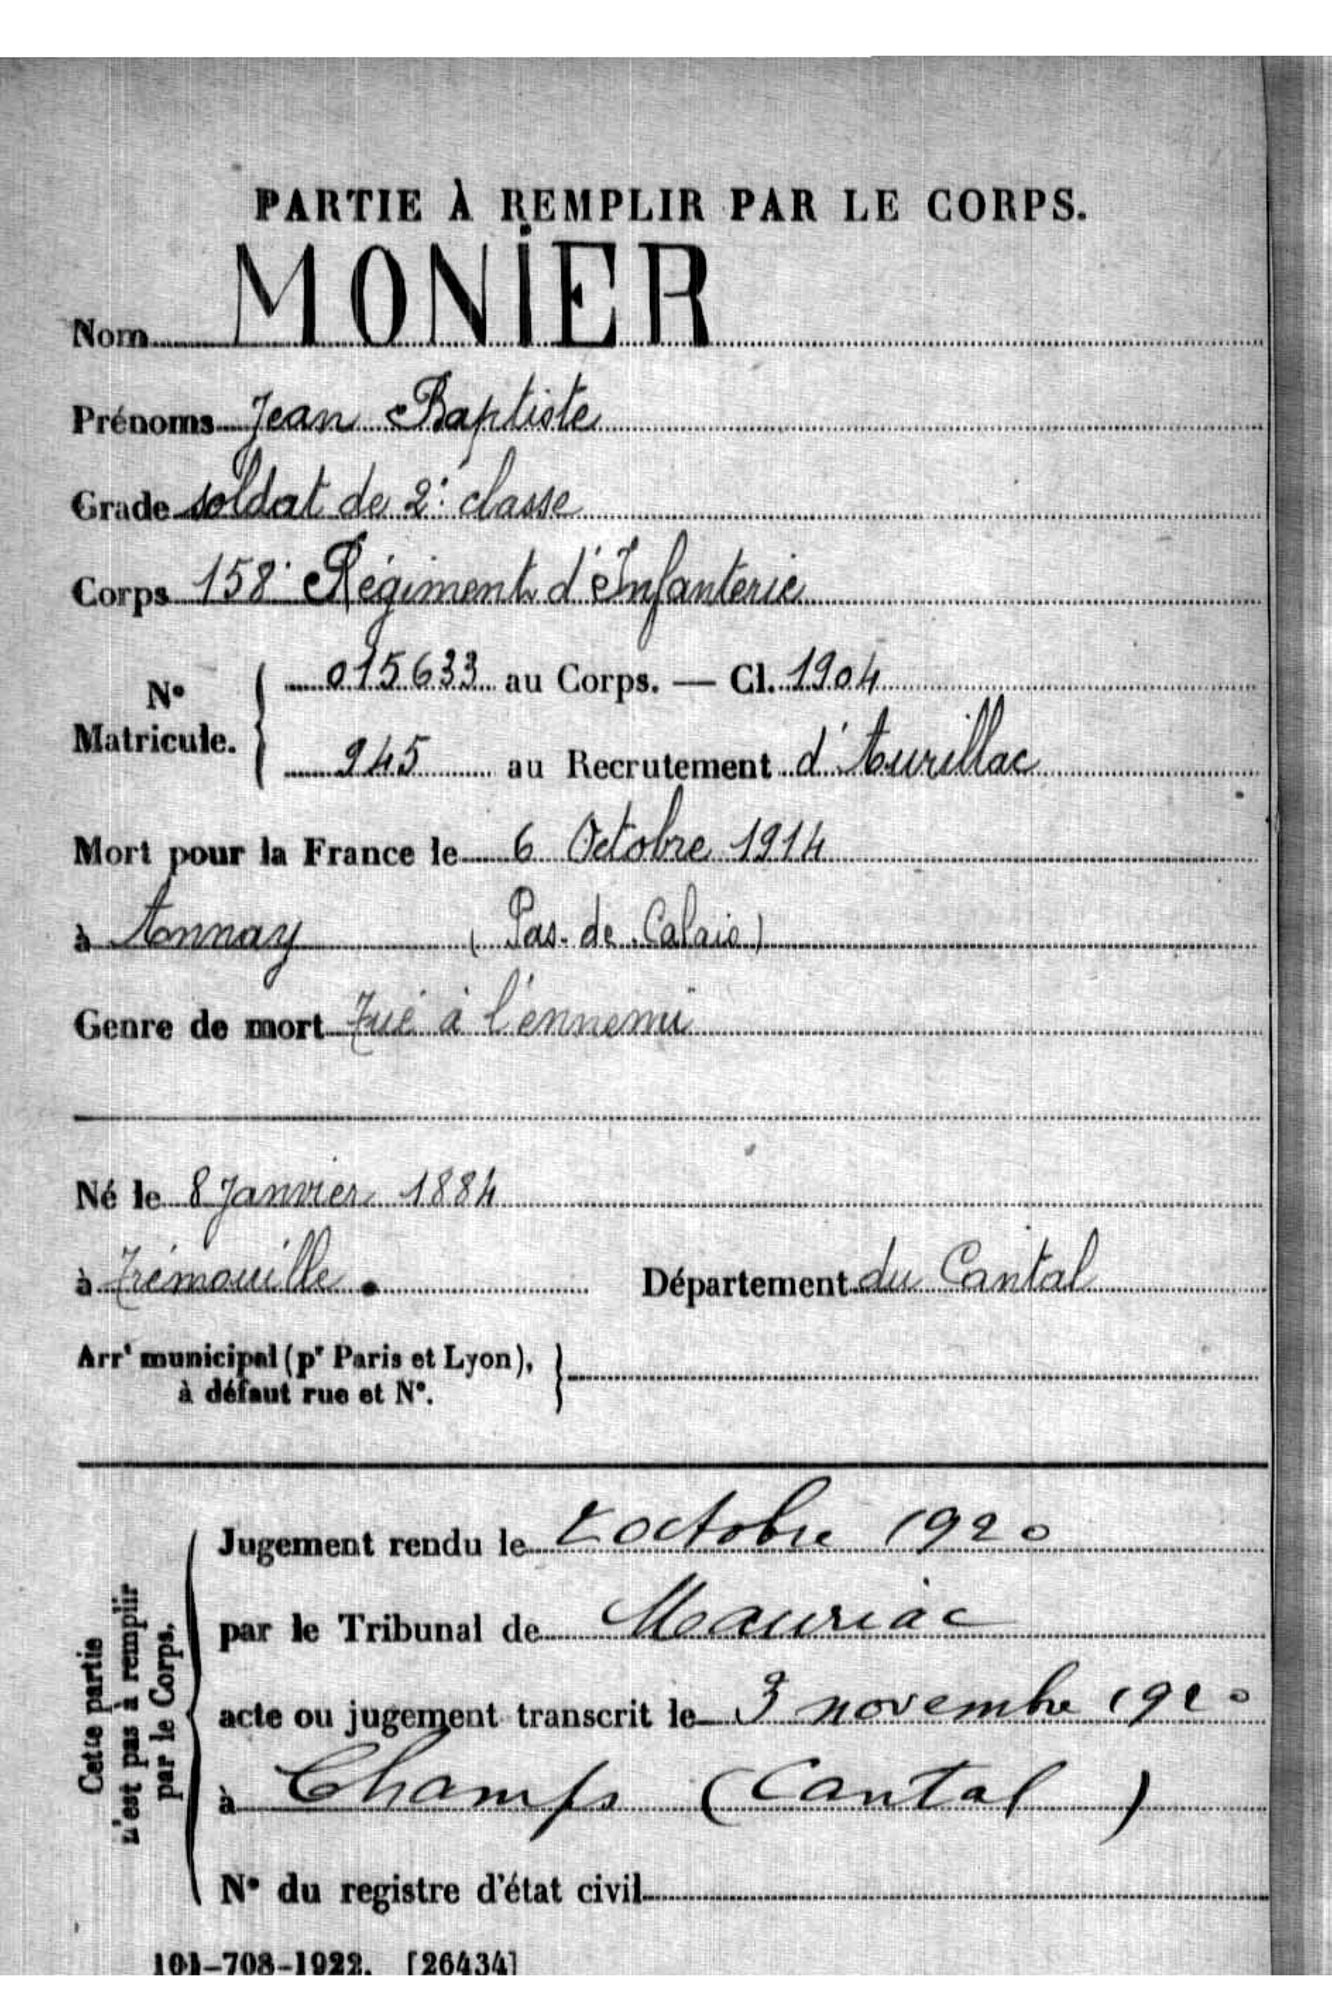 PARTIE À REMPLIR PAR LE CORPS.
Nom MONIER
Prénoms Jean Baptiste
Grade soldat de 2e classe
Corps 158e Régiment d'Infanterie
No Matricule. { 015633 au Corps. — Cl. 1904
945 au Recrutement d'Aurillac
Mort pour la France le 6 Octobre 1914
à Annay (Pas-de-Calais)
Genre de mort Tué à l'ennemi
Né le 8 Janvier 1884
à Trémouille. Département du Cantal
Arrt municipal (pr Paris et Lyon), à défaut rue et No. }
Cette partie n'est pas à remplir par le Corps.
Jugement rendu le octobre 1920
par le Tribunal de Mauriac
acte ou jugement transcrit le 3 novembre 1920
à Champs (Cantal)
No du registre d'état civil
101-708-1922. [26434]